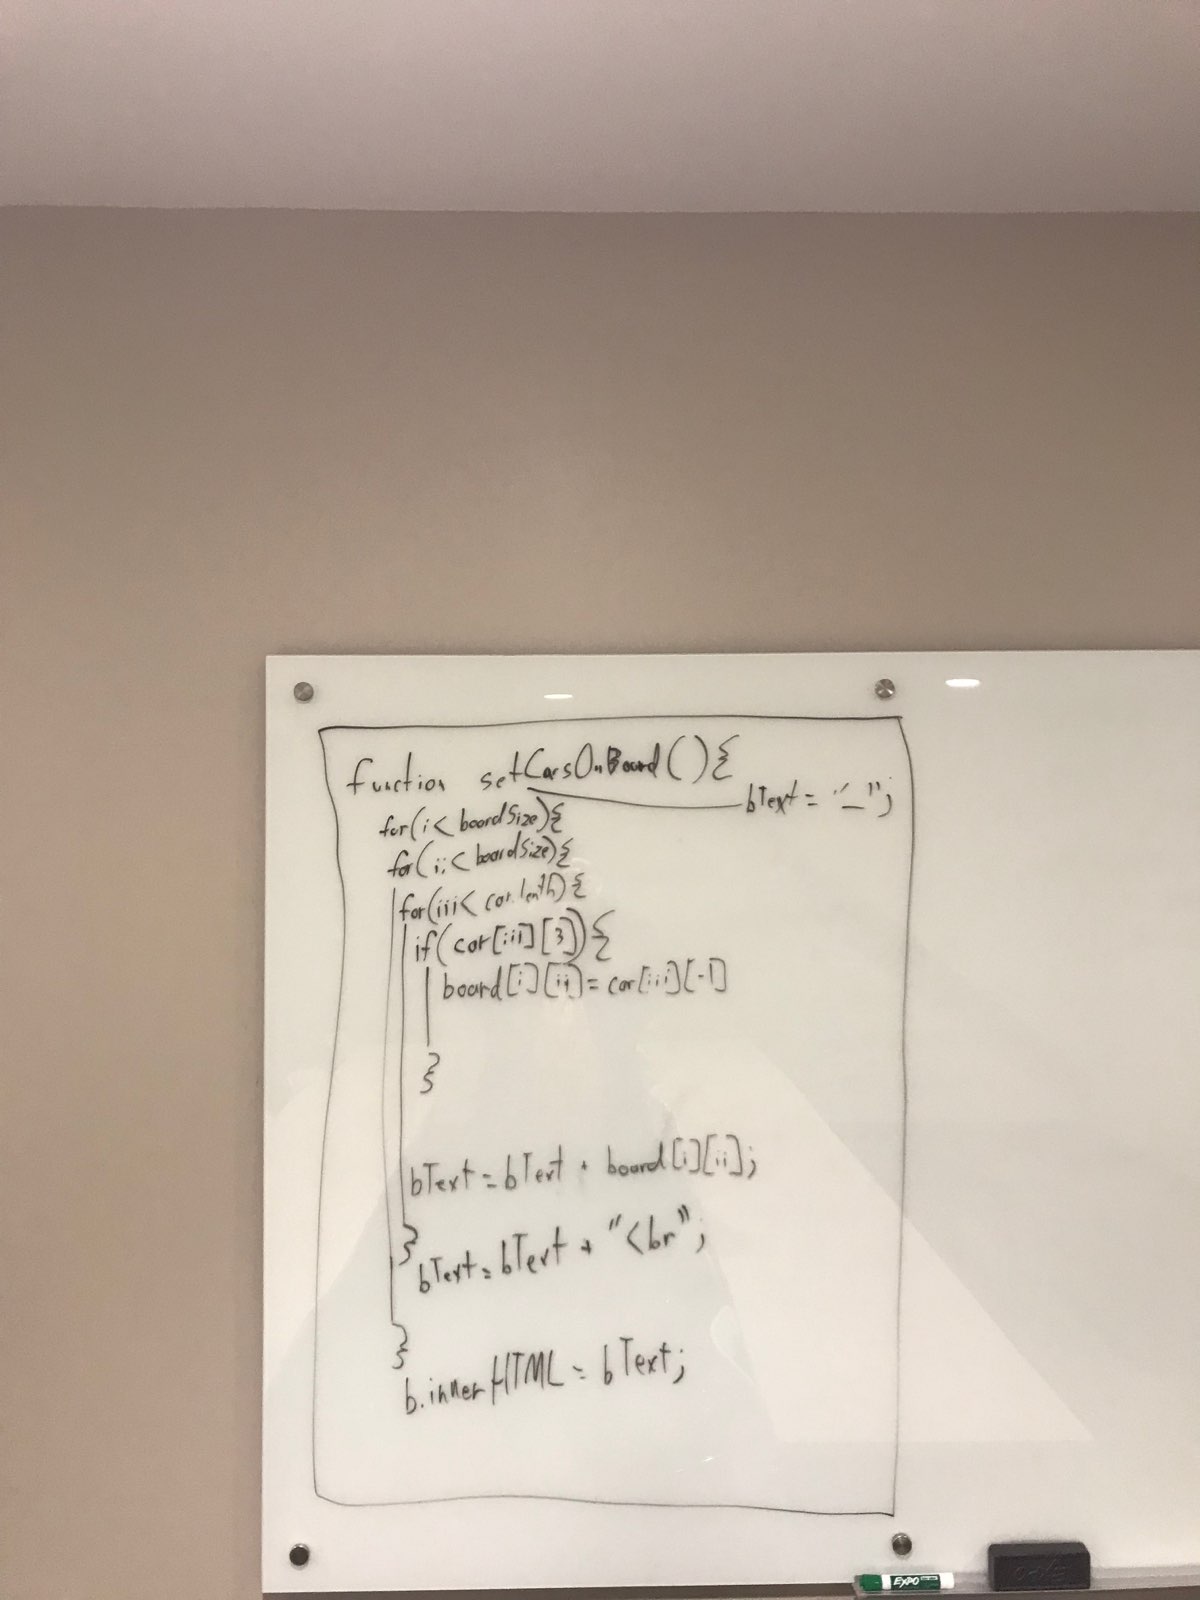 function setCarsOnBoard(){
bText = "_";
for(i< boardSize){
for(ii< boardSize){
for(iii< car.lenth){
if(car[iii][3]){
board[i][ii]= car[iii][-1]
}
bText = bText + board[i][ii];
}
bText = bText + "<br";
}
b.innerHTML = bText;
EXPO
EXPO